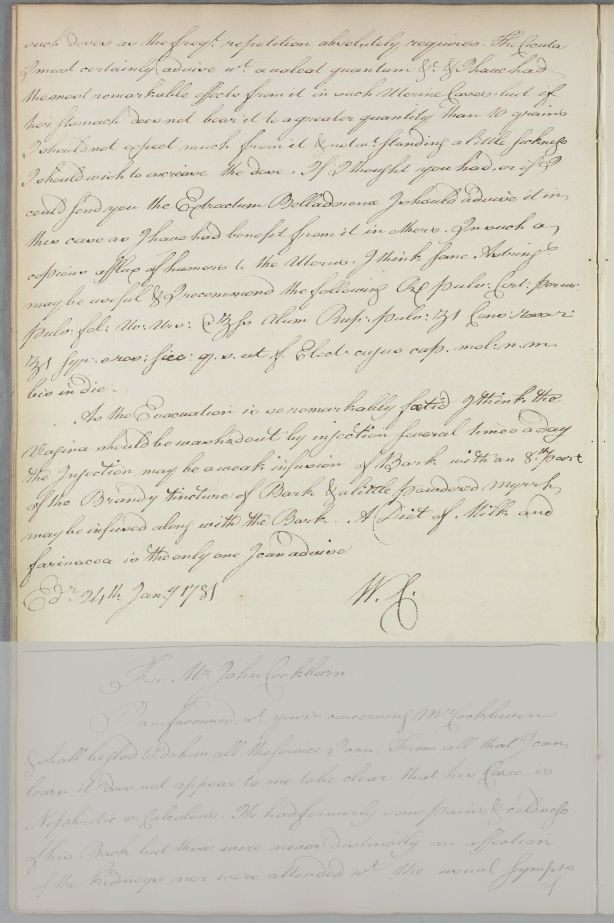 such doses as the freqt. repetition absolutely requires. The Cicuta
I must certainly advise wt. a valeat quantum &c & I have had
the most remarkable effects from it in such Uterine Cases but if
her stomach does not bear it to a greater quantity than 10 grains
I should not expect much from it & notwt.standing a little sickness
I should wish to increase the dose. If I thought you had, or if I
could send you the Extractum Belladonna I should advise it in
this case as I have had benefit from it in others. In such a
copious afflux of humors to the Uterus. I think some Astrings
may be useful & I recommend the following Rx Pulv: Cort: Peruv:
Pulv: fol: Uv: Urs: ʒfs Alum Rup: Pulv: ʒ1 Cons: rosar:
ʒ1 Syr: e ros: sicc: q. s. ut f. Elect: cujus cap. mol: n. m.
bis in die.
As the Evacuation is so remarkably fœtid I think the
Vagina should be washed out by injection several times a day
the Injection may be a weak infusion of Bark with an 8th part
of the Brandy tincture of Bark & a little powdered Myrrh
may be infused along with the Bark. A Diet of Milk and
farinacea is the only one I can advise
Edr. 24th Jany 1781 W. C.
For Mr John Cockburn
I am favoured wt. yours concerning Mr Cockburn
& shall be glad to do him all the service I can. From all that I can
learn it does not appear to me to be clear that his Case is
Nephritic or Calculous. He had formerly some pains & coldness
of his Back but these were never distinctly an affection
of the kidneys nor were attended wt. the usual Symps